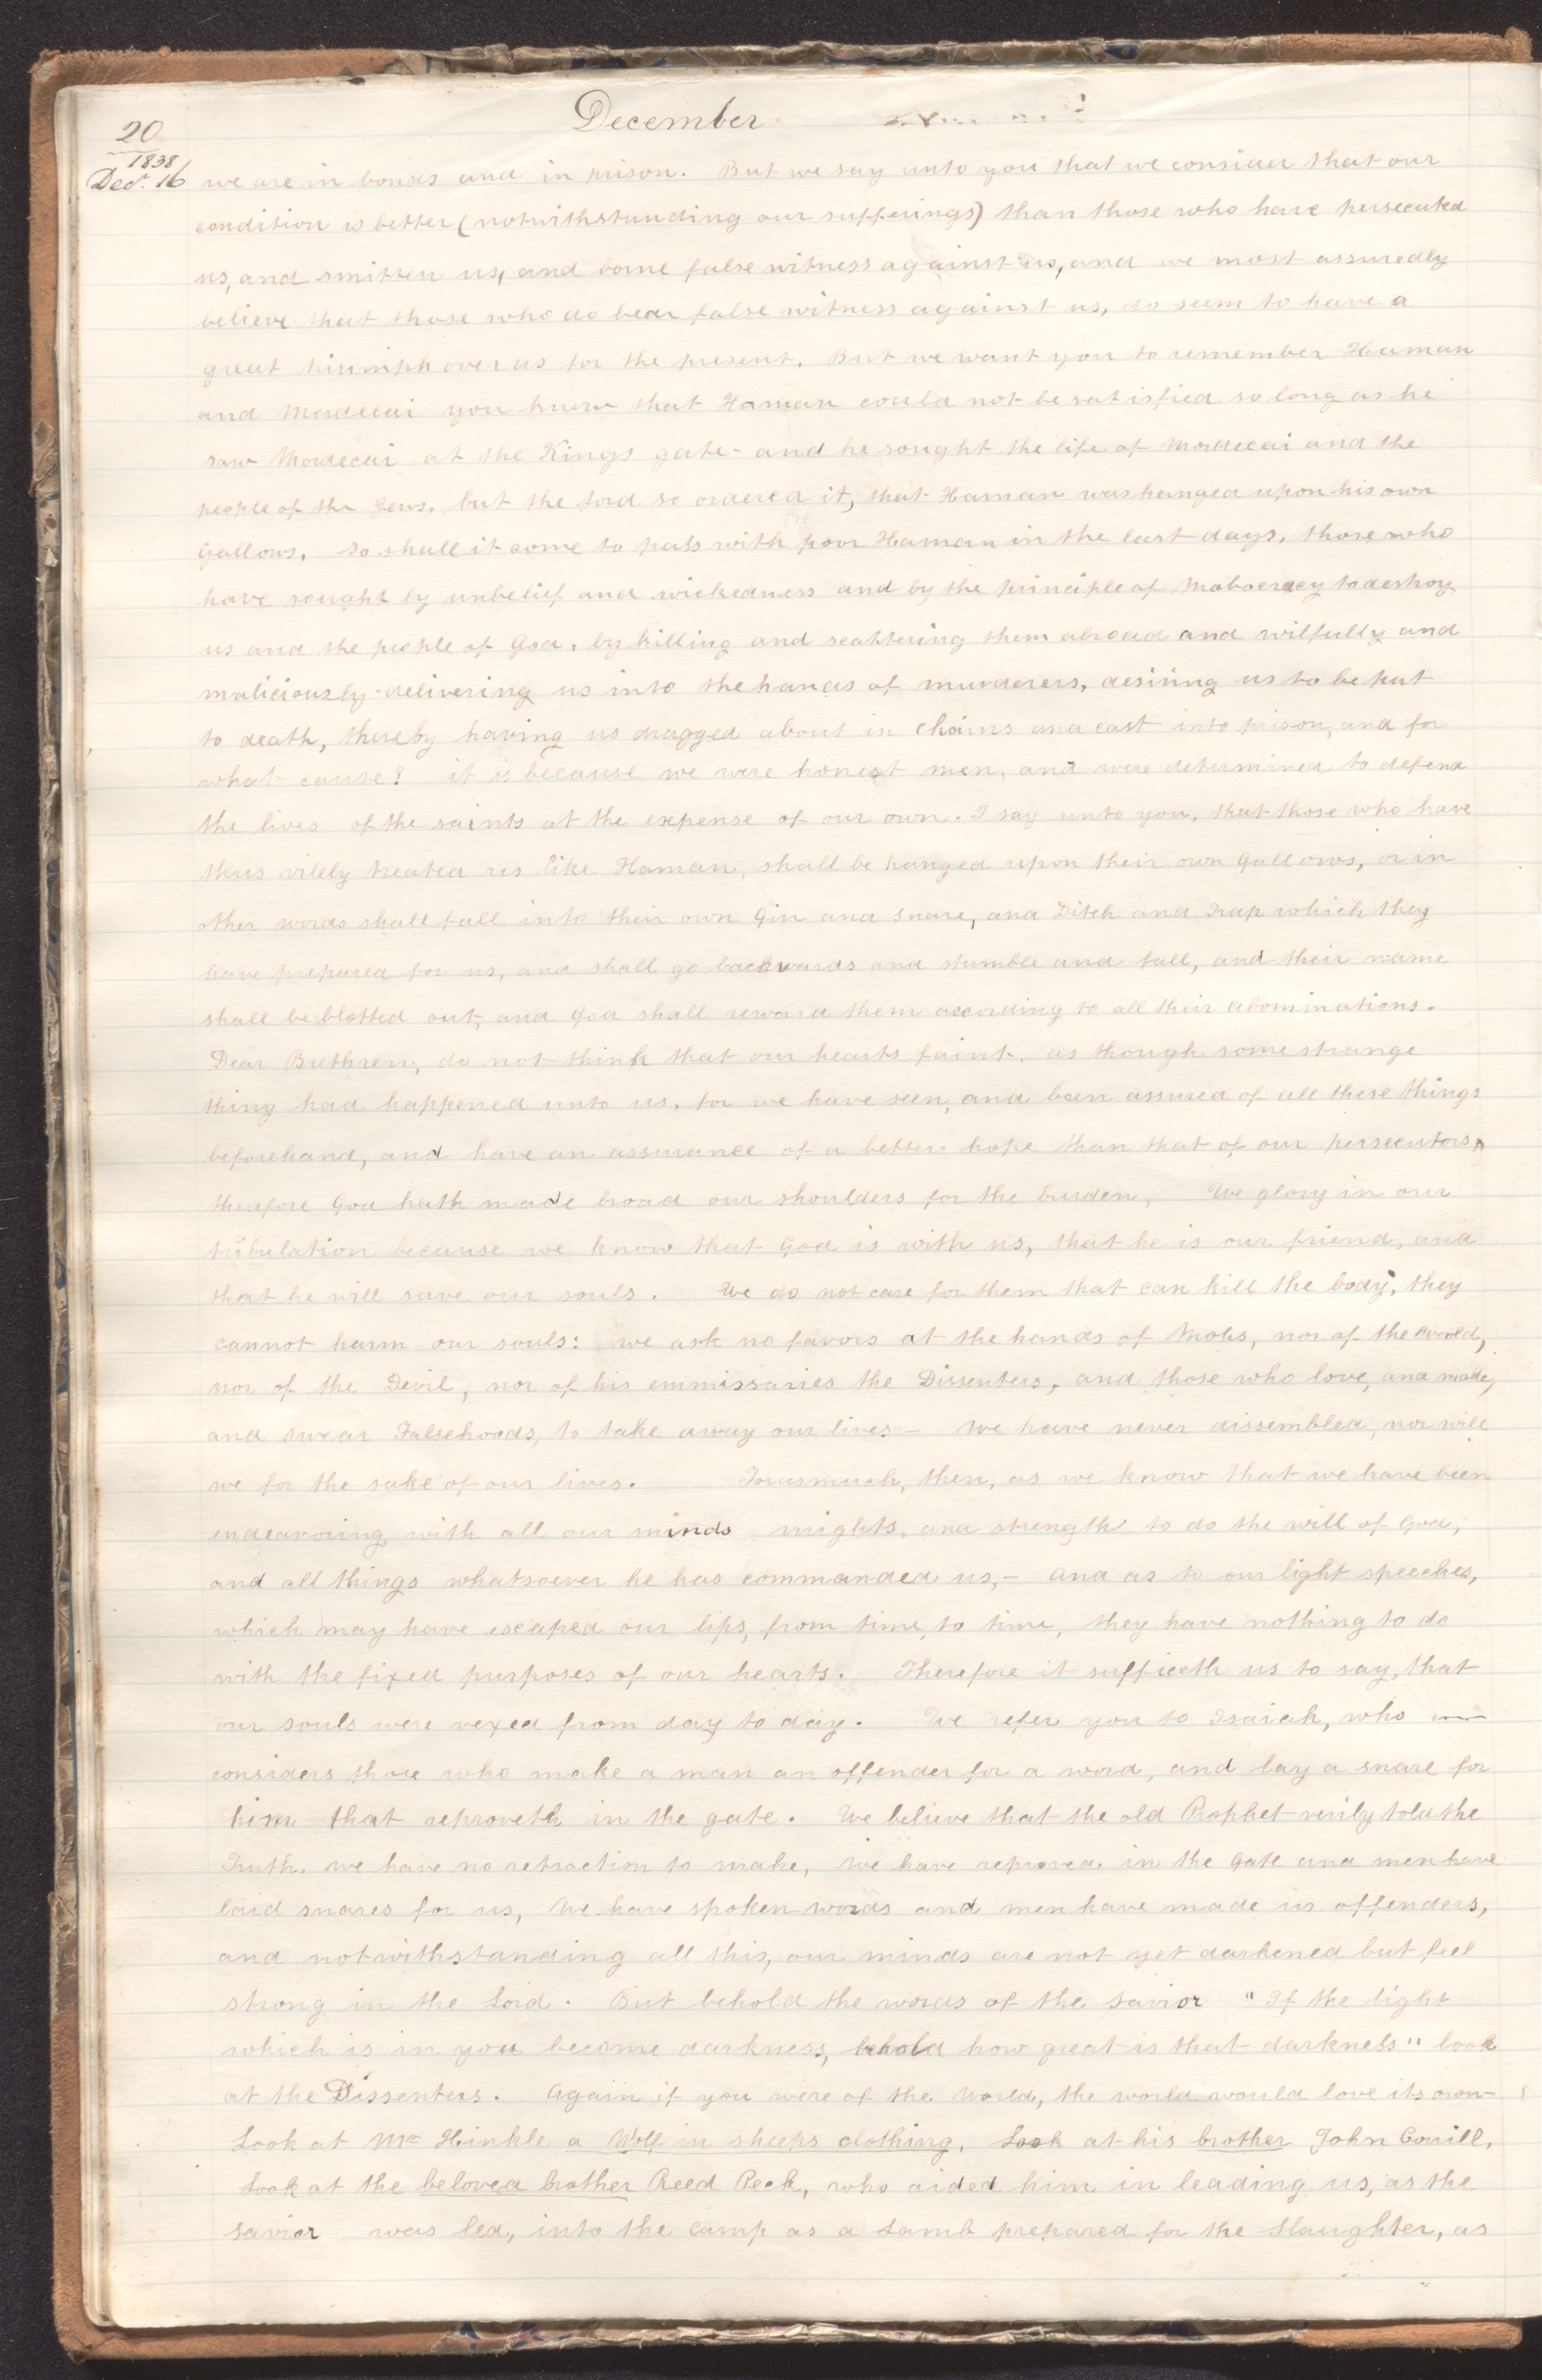 December
20
1838
Decr. 16
we are in bonds and in prison. But we say unto you that we consider that our
condition is better (notwithstanding our sufferings) than those who have persecuted
us, and smitten us, and borne false witness against us, and we most assuredly
believe that those who do bear false witness against us, do seem to have a
great triumph over us for the present. But we want you to remember Haman
and Mordecai you know that Haman could not be satisfied so long as he
saw Mordecai at the Kings gate- and he sought the life of Mordecai and the
people of the Jews. but the Lord so ordered it, that Haman was hanged upon his own
Gallows. So shall it come to pass with poor Haman in the last days, those who
have sought by unbelief and wickedness and by the principle of Mobocracy to destroy
us and the people of God, by killing and scattering them abroad and wilfully and
maliciously delivering us into the hands of murderers, desiring us to be put
to death, thereby having us dragged about in chains and cast into prison, and for
what cause? it is because we were honest men, and were determined to defend
the lives of the saints at the expense of our own. I say unto you, that those who have
thus vilely treated us like Haman, shall be hanged upon their own Gallows, or in
other words shall fall into their own Gin and Snare, and Ditch and Trap which they
have prepared for us, and shall go backwards and stumble and fall, and their name
shall be blotted out, and God shall reward them according to all their abominations.
Dear Brethren, do not think that our hearts faint, as though some strange
thing had happened unto us, for we have seen, and been assured of all these things
beforehand, and have an assurance of a better hope than that of our persecutors,
therefore God hath made broad our shoulders for the burden, We glory in our
tribulation because we know that God is with us, that he is our friend, and
that he will save our souls. We do not care for them that can kill the body, they
cannot harm our souls: we ask no favors at the hands of Mobs, nor of the world,
nor of the Devil, nor of his emmissaries the Dissenters, and those who love, and make,
and swear Falsehoods, to take away our lives— We have never dissembled, nor will
we for the sake of our lives. Forasmuch, then, as we know that we have been
endeavoring with all our minds mights, and strength to do the will of God,
and all things whatsoever he has commanded us,— and as to our light speeches,
which may have escaped our lips, from time, to time, they have nothing to do
with the fixed purposes of our hearts. Therefore it sufficeth us to say, that
our souls were vexed from day to day. We refer you to Isaiah, who
considers those who make a man an offender for a word, and lay a snare for
him that reproveth in the gate. We believe that the old Prophet verily told the
Truth. we have no retraction to make, we have reproved in the Gate and men have
laid snares for us, We have spoken words and men have made us offenders,
and notwithstanding all this, our minds are not yet darkened but feel
strong in the Lord. But behold the words of the Savior "If the light
which is in you become darkness, behold how great is that darkness" look
at the Dissenters. Again if you were of the World, the world would love its own—
Look at Mr Hinkle a Wolf in sheeps clothing, Look at his brother John Corrill,
Look at the beloved brother Reed Peck, who aided him in leading us, as the
Savior was led, into the camp as a Lamb prepared for the Slaughter, as